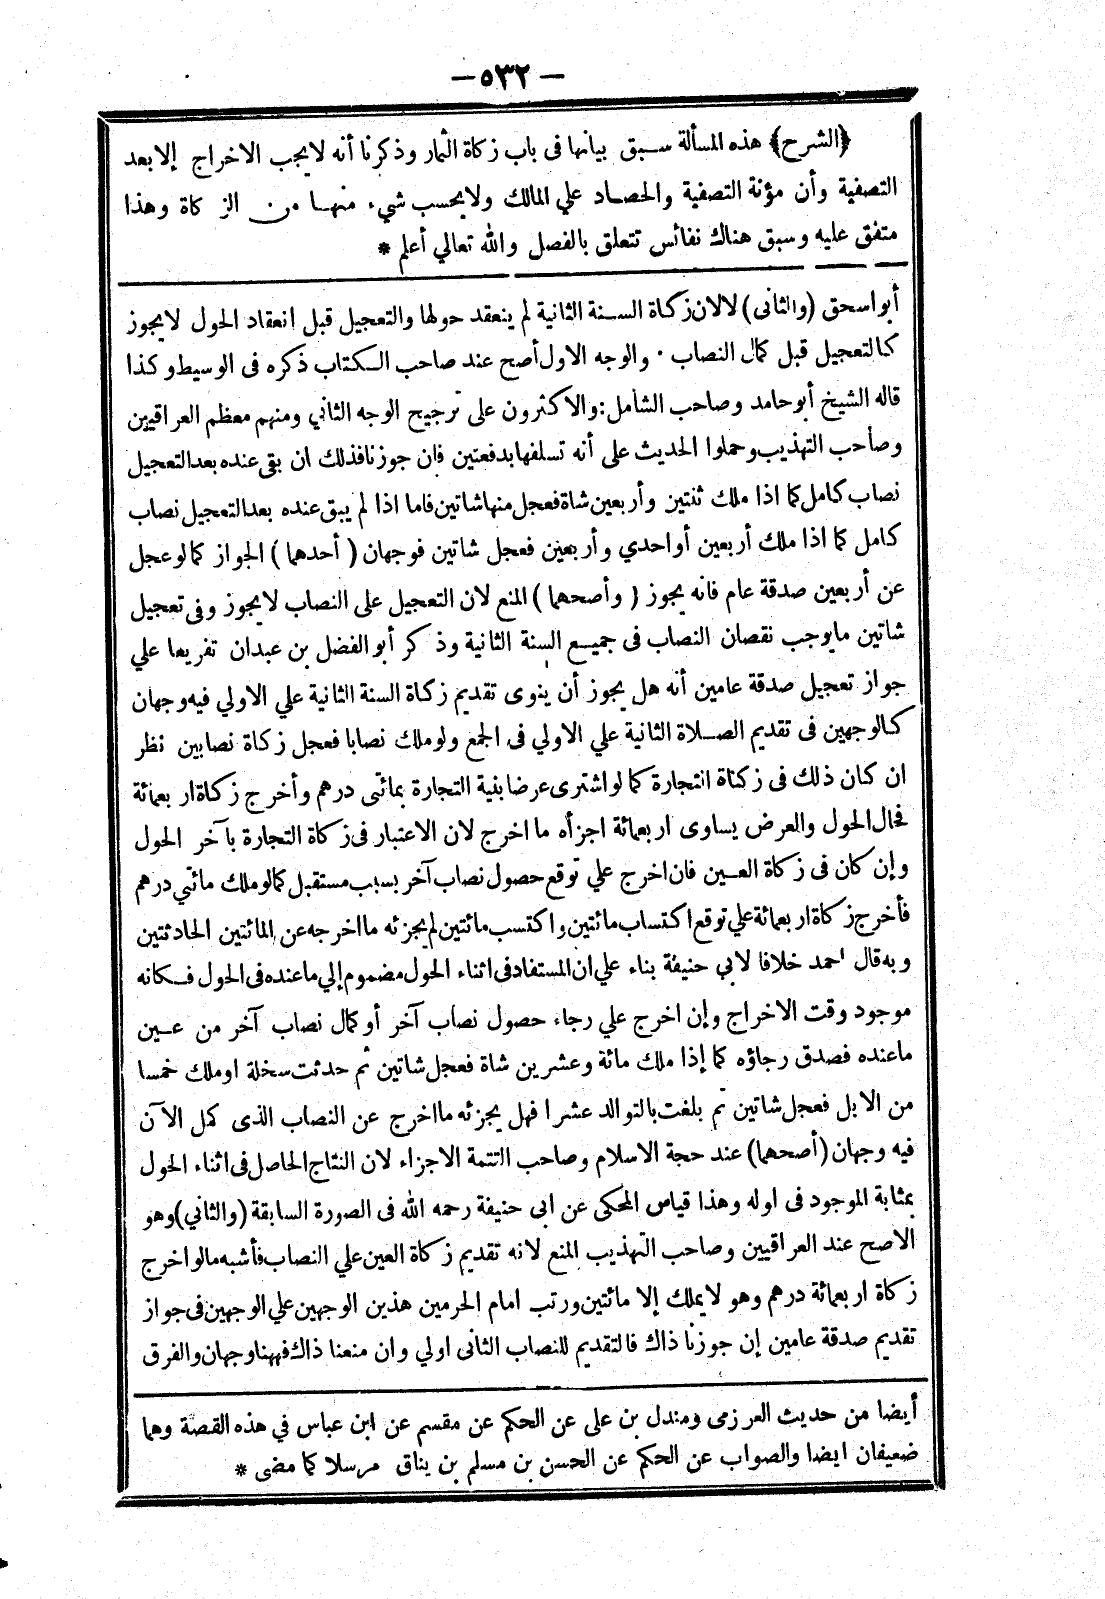 — ٥٣٢ —
﴿الشرح﴾ هذه المسألة سبق بيانها فى باب زكاة الثمار وذكرنا أنه لايجب الاخراج إلا بعد
التصفية وأن مؤنة التصفية والحصاد علي المالك ولايحسب شيء منها من الزكاة وهذا
متفق عليه وسبق هناك نفائس تتعلق بالفصل والله تعالي أعلم *
أبواسحق (والثانى) لا لان زكاة السنة الثانية لم ينعقد حولها والتعجيل قبل انعقاد الحول لايجوز
كالتعجيل قبل كمال النصاب · والوجه الاول أصح عند صاحب الكتاب ذكره فى الوسيط وكذا
قاله الشيخ أبوحامد وصاحب الشامل: والاكثرون على ترجيح الوجه الثاني ومنهم معظم العراقيين
وصاحب التهذيب وحملوا الحديث على أنه تسلفها بدفعتين فان جوزنا فذلك ان بقى عنده بعد التعجيل
نصاب كامل كما اذا ملك ثنتين وأربعين شاة فعجل منها شاتين فاما اذا لم يبق عنده بعد التعجيل نصاب
كامل كما اذا ملك أربعين أواحدي وأربعين فعجل شاتين فوجهان (أحدهما) الجواز كما لوعجل
عن أربعين صدقة عام فانه يجوز (وأصحهما) المنع لان التعجيل على النصاب لايجوز وفى تعجيل
شاتين مايوجب نقصان النصاب فى جميع السنة الثانية وذكر أبو الفضل بن عبدان تفريعا علي
جواز تعجيل صدقة عامين أنه هل يجوز أن ينوى تقديم زكاة السنة الثانية علي الاولي فيه وجهان
كالوجهين فى تقديم الصلاة الثانية علي الاولي فى الجمع ولوملك نصابا فعجل زكاة نصابين نظر
ان كان ذلك فى زكاة التجارة كما لو اشترى عرضا بنية التجارة بمائتى درهم وأخرج زكاة اربعمائة
فحال الحول والعرض يساوى اربعمائة اجزأه ما اخرج لان الاعتبار فى زكاة التجارة بآخر الحول
وإن كان فى زكاة العين فان اخرج علي توقع حصول نصاب آخر بسبب مستقبل كما لو ملك مائتي درهم
فأخرج زكاة اربعمائة علي توقع اكتساب مائتين واكتسب مائتين لم يجزئه ما اخرجه عن المائتين الحادثتين
وبه قال احمد خلافا لابي حنيفة بناء علي ان المستفاد فى اثناء الحول مضموم إلي ماعنده فى الحول فكانه
موجود وقت الاخراج وإن اخرج علي رجاء حصول نصاب آخر أو كمال نصاب آخر من عين
ماعنده فصدق رجاؤه كما إذا ملك مائة وعشرين شاة فعجل شاتين ثم حدثت سخلة او ملك خمسا
من الابل فعجل شاتين ثم بلغت بالتوالد عشرا فهل يجزئه ما اخرج عن النصاب الذى كمل الآن
فيه وجهان (أصحهما) عند حجة الاسلام وصاحب التتمة الاجزاء لان النتاج الحاصل فى اثناء الحول
بمثابة الموجود فى اوله وهذا قياس المحكى عن ابى حنيفة رحمه الله فى الصورة السابقة (والثاني) وهو
الاصح عند العراقيين وصاحب التهذيب المنع لانه تقديم زكاة العين علي النصاب فأشبه مالو اخرج
زكاة اربعمائة درهم وهو لايملك إلا مائتين ورتب امام الحرمين هذين الوجهين علي الوجهين فى جواز
تقديم صدقة عامين إن جوزنا ذاك فالتقديم للنصاب الثانى اولي وان منعنا ذاك فههنا وجهان والفرق
أيضا من حديث العرزمى ومندل بن على عن الحكم عن مقسم عن ابن عباس في هذه القصة وهما
ضعيفان ايضا والصواب عن الحكم عن الحسن بن مسلم بن يناق مرسلا كما مضى *